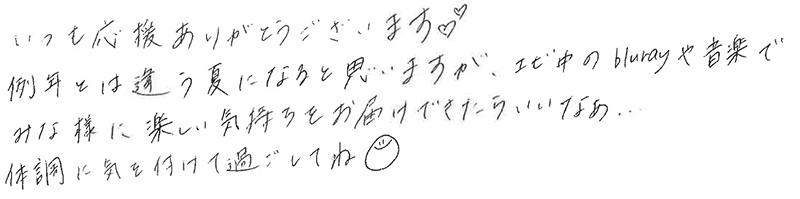 いつも応援ありがとうございます♡♡
例年とは違う夏になると思いますが、エビ中のblurayや音楽で
みな様に楽しい気持ちをお届けできたらいいなぁ...
体調に気を付けて過ごしてね☺